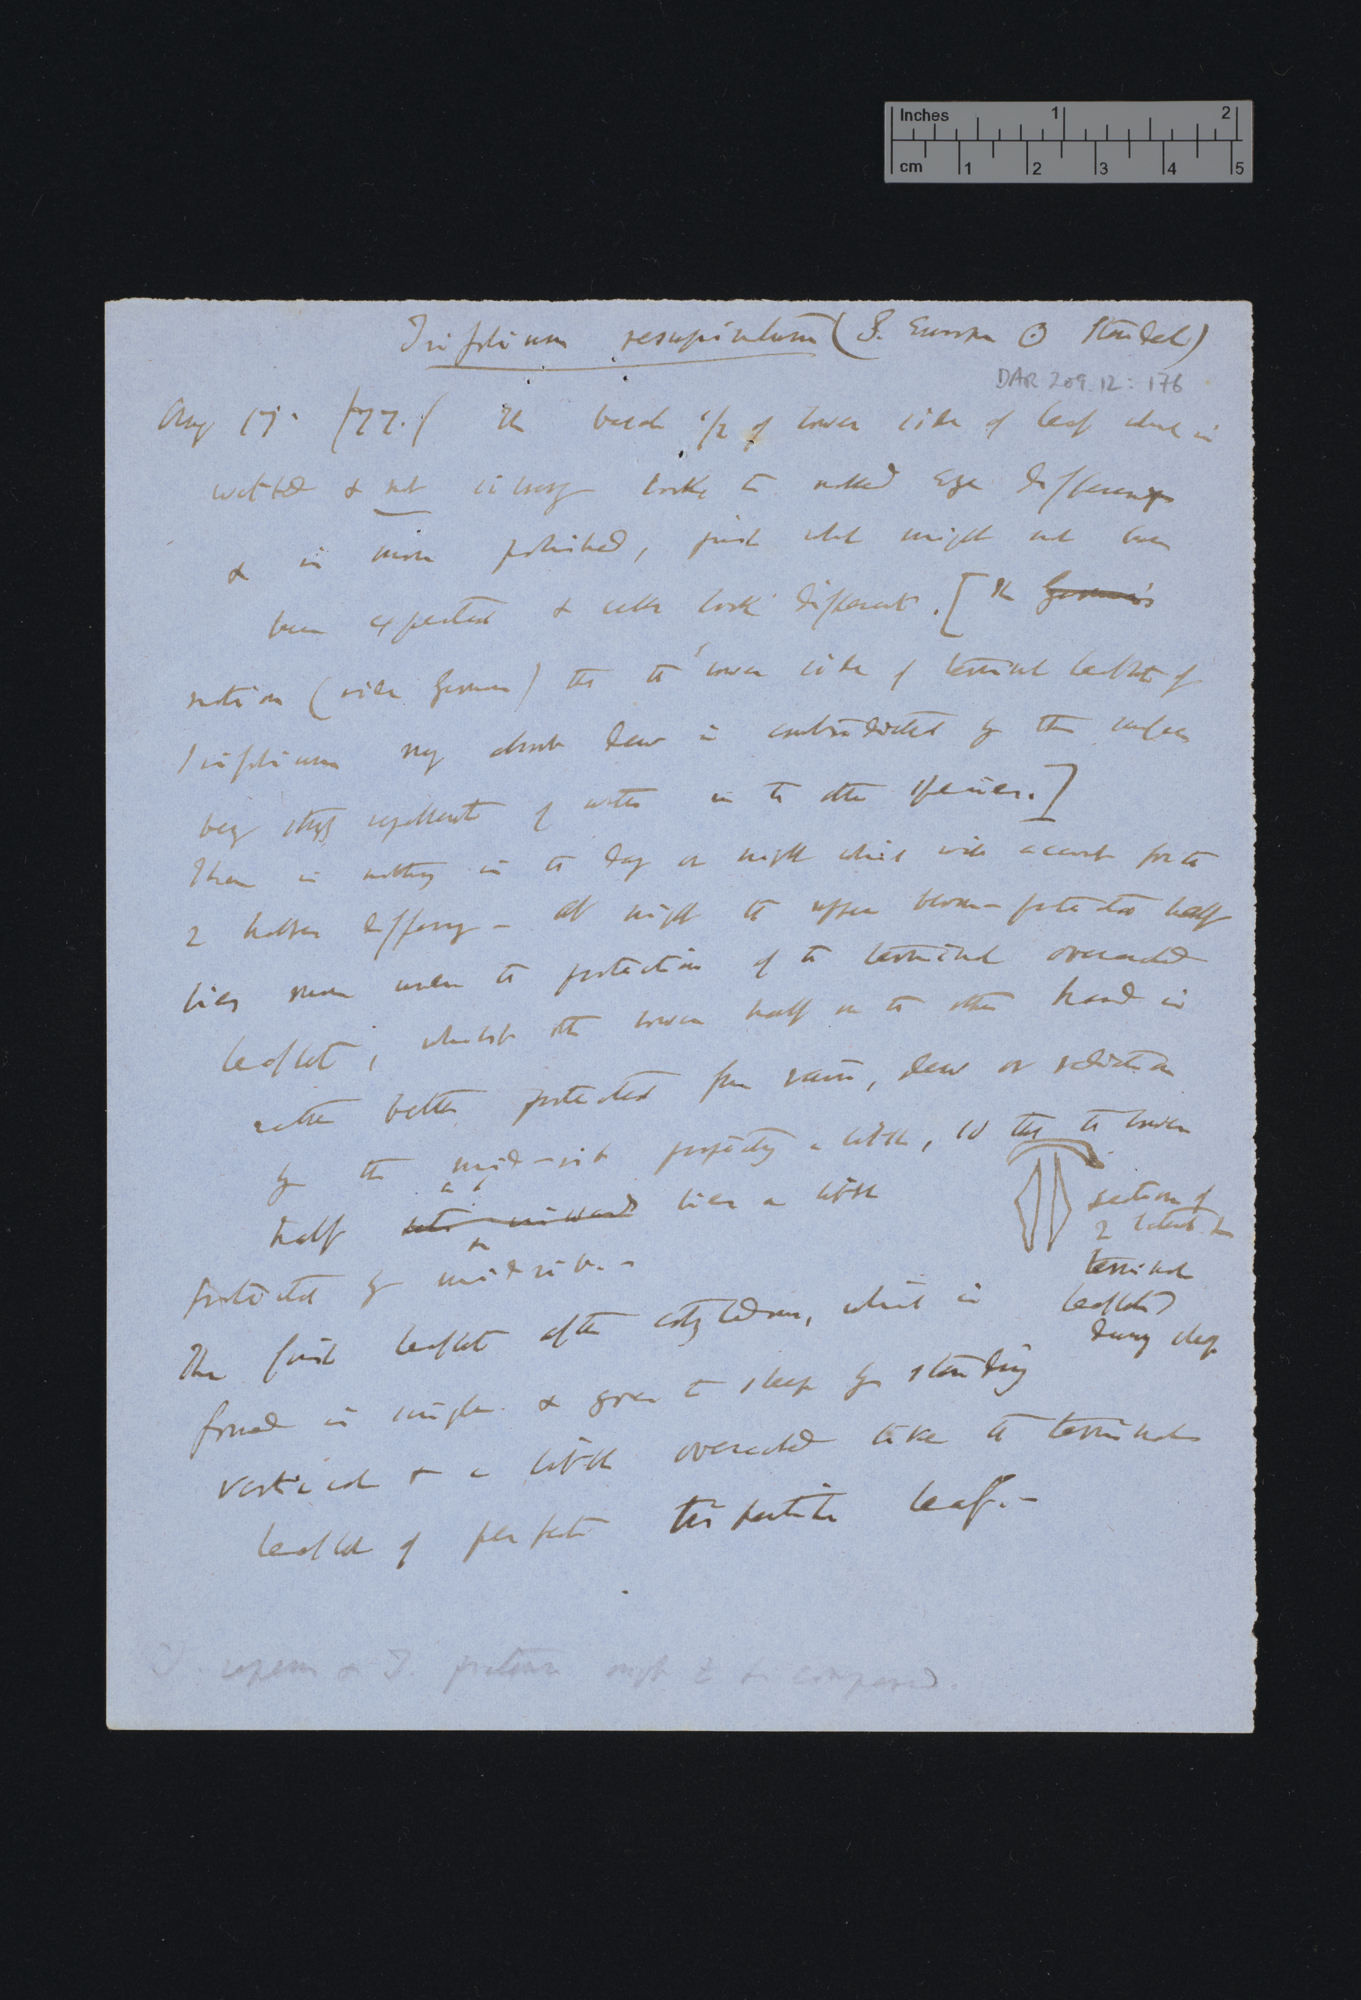 Inches 1 2
cm 1 2 3 4 5
Trifolium resupinatum (S. Europe ⊙ Steudel)
DAR 209.12: 176
Aug 17. /77./ The basal 1/2 of lower side of leaf which is
wetted & not silvery looks to naked eye different
& is more polished, just what might not have
been expected & cells look different. [The
notion (vide) that the lower side of terminal leaflet of
Trifolium may absorb dew is contradicted by the surface
being repellent of water in the other species.]
There is nothing in the day or night which will account for the
2 halves differing — At night the upper bloom-protected half
lies more under the protection of the terminal overarched
leaflet, whilst the lower half on the other hand is
rather better protected from rain, dew or radiation
by the mid-rib projecting a little, so that the lower
half lies a little
protected by midrib. —
section of
2 lateral &
terminal
leaflets
during sleep
The first leaflet after cotyledons, which is
formed is single & goes to sleep by standing
vertical & a little overarched like the terminal
leaflet of perfect tripartite leaf. —
T. repens & T. pratense might be compared.